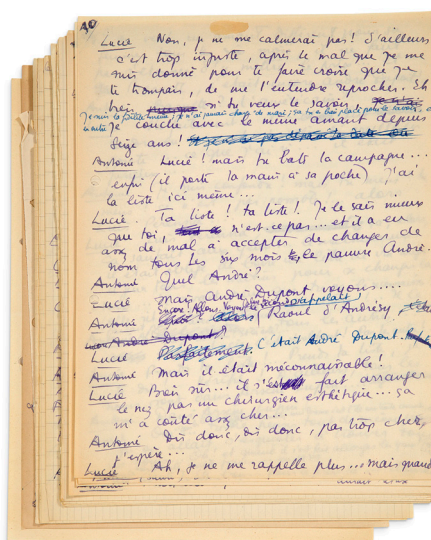 30
Lucie Non, je ne me calmerai pas ! D'ailleurs
c'est trop injuste, après le mal que je me
suis donné pour te faire croire que je
te trompais, de me l'entendre reprocher. Eh
bien, si tu veux le savoir,
Je suis ta fidèle Lucie ; je n'ai jamais changé de mari ; tu es bien placé pour le savoir,
Je couche avec le même amant depuis
Seize ans !
Antoine Lucie ! mais tu bats la campagne...
enfin (il porte la main à sa poche) j'ai
la liste ici même...
Lucie. Ta liste ! ta liste ! Je la sais mieux
que toi, n'est-ce pas... et il a eu
assez de mal à accepter de changer de
nom tous les six mois le pauvre André.
Antoine Quel André ?
Lucie mais André Dupont, voyons....
Antoine Encore ! Allons. Voyons s'appelait Raoul d'Andrésy
Lucie Parfaitement. C'était André Dupont.
Antoine Mais il était méconnaissable !
Lucie Bien sûr... il s'est fait arranger
le nez par un chirurgien esthétique... ça
m'a coûté assez cher...
Antoine. Dis donc, dis donc, pas trop cher,
j'espère...
Lucie Ah, je ne me rappelle plus... mais quand